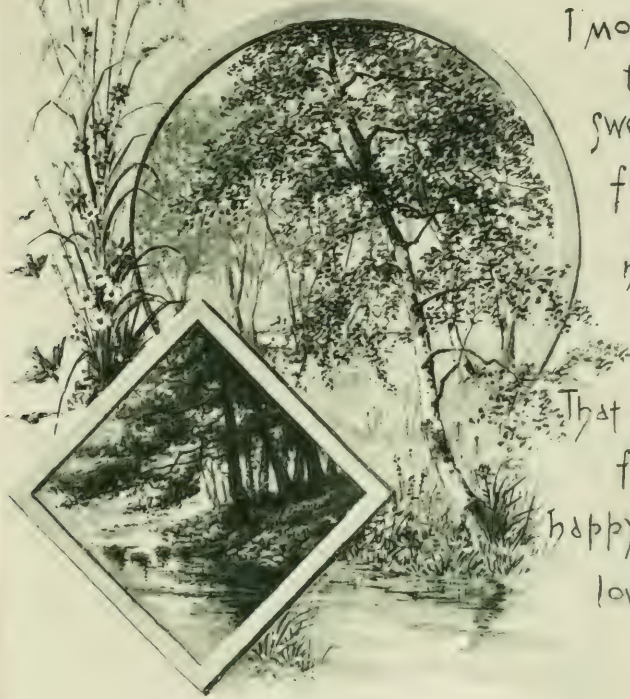 I mo
t
swe
f
That
f
happy
lov